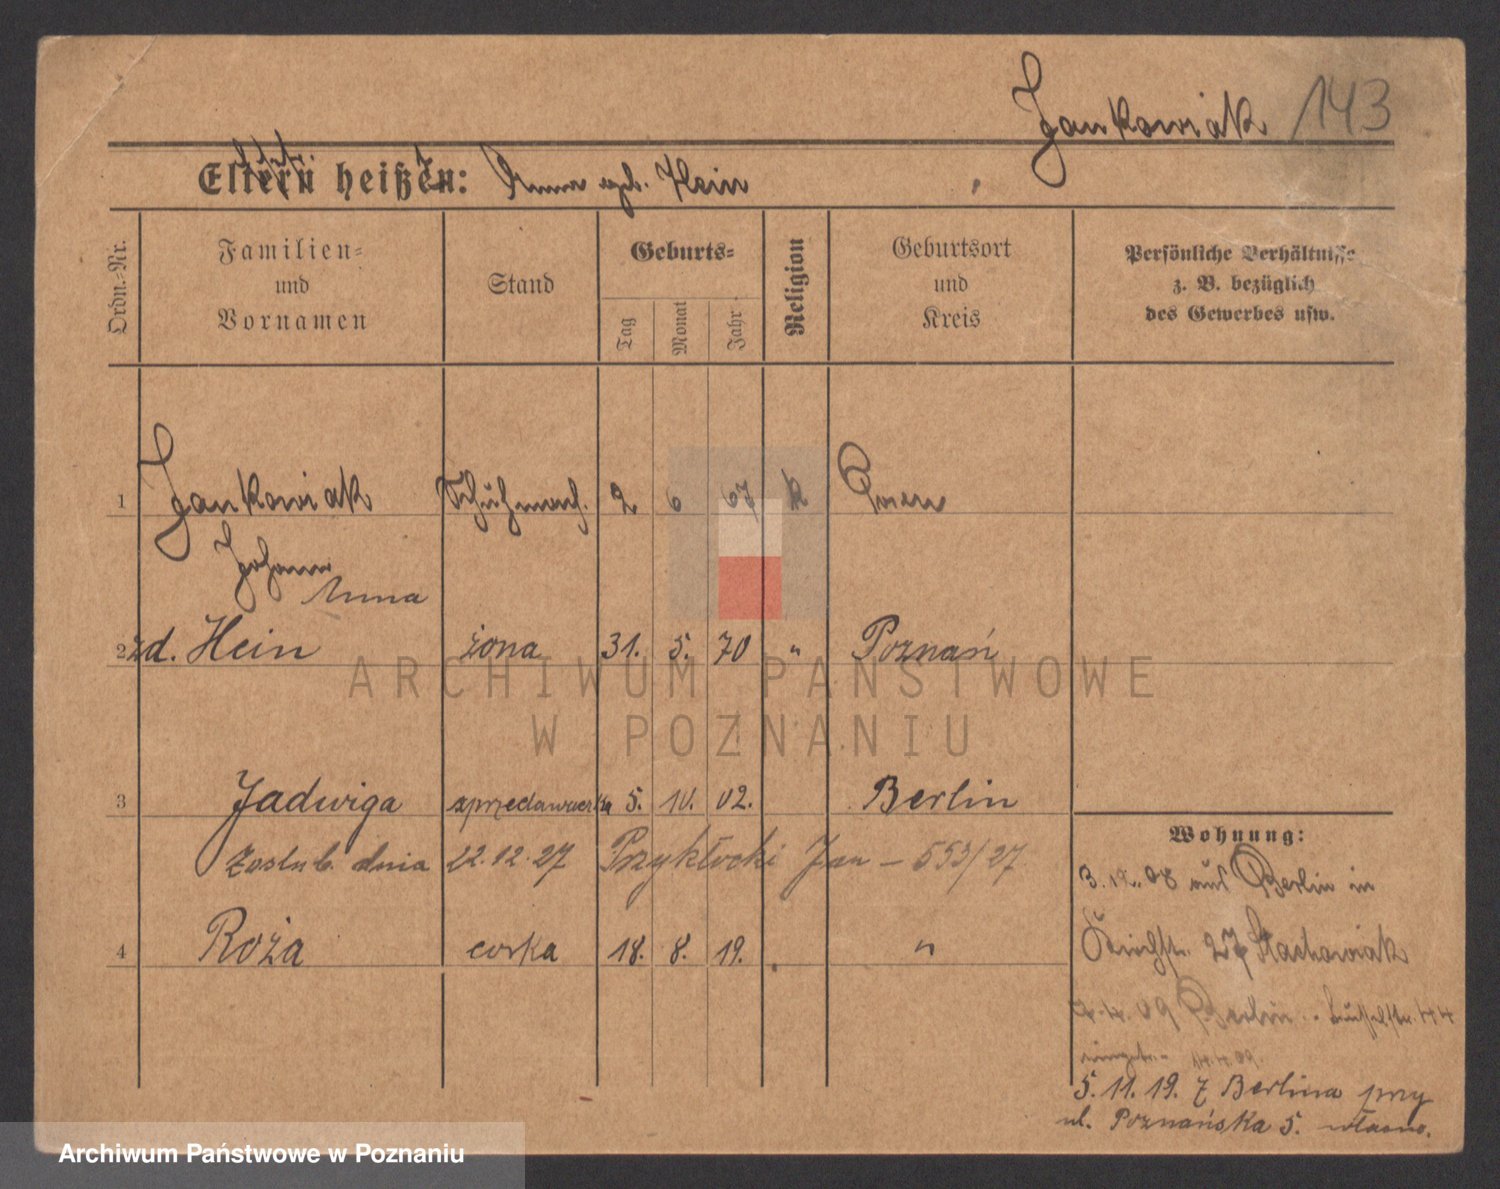 Jankowiak 143
Eltern heißen: Anna geb. Hein
Ordn.-Nr.
Familien-
und
Vornamen
Stand
Geburts-
Tag
Monat
Jahr
Religion
Geburtsort
und
Kreis
Persönliche Verhältnisse
z. B. bezüglich
des Gewerbes usw.
1 Jankowiak Schuhmach. 2 6 67 k Posen
Johann
Anna
2 zd. Hein żona 31. 5. 70 " Poznań
3 Jadwiga sprzedawczerka 5. 10. 02. Berlin
Zaślub. dnia 22.12.27 Przykłocki Jan – 553/27
4 Roża corka 18. 8. 19. "
Wohnung:
3.12.08 aus Berlin in
27 Stachowiak
7.4.09 Berlin 44
14.4.09.
5. 11. 19. z Berlina przy
ul. Poznańska 5. własne.
ARCHIWUM PAŃSTWOWE
W POZNANIU
Archiwum Państwowe w Poznaniu